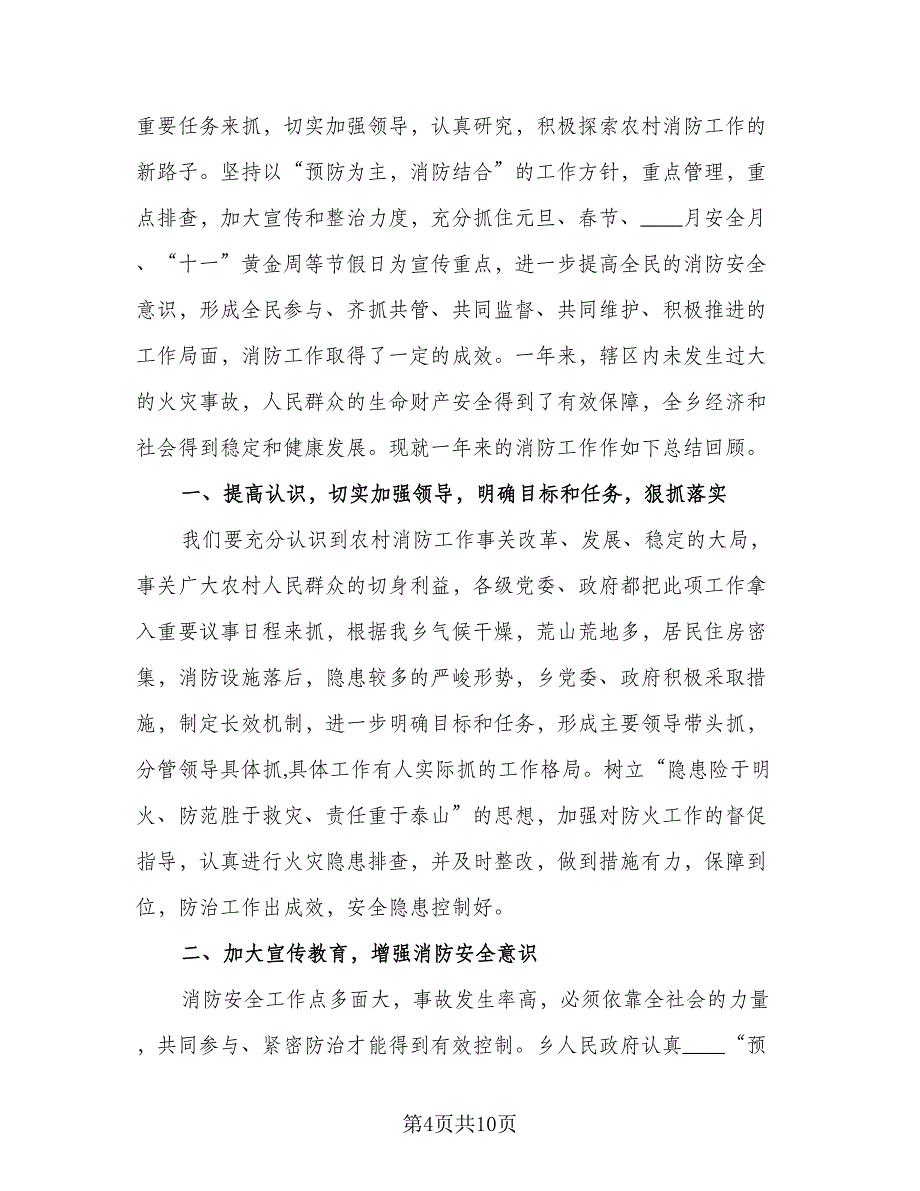 重要任务来抓，切实加强领导，认真研究，积极探索农村消防工作的
新路子。坚持以“预防为主，消防结合”的工作方针，重点管理，重
点排查，加大宣传和整治力度，充分抓住元旦、春节、____月安全月
、“十一”黄金周等节假日为宣传重点，进一步提高全民的消防安全
意识，形成全民参与、齐抓共管、共同监督、共同维护、积极推进的
工作局面，消防工作取得了一定的成效。一年来，辖区内未发生过大
的火灾事故，人民群众的生命财产安全得到了有效保障，全乡经济和
社会得到稳定和健康发展。现就一年来的消防工作作如下总结回顾。
一、提高认识，切实加强领导，明确目标和任务，狠抓落实
我们要充分认识到农村消防工作事关改革、发展、稳定的大局，
事关广大农村人民群众的切身利益，各级党委、政府都把此项工作拿
入重要议事日程来抓，根据我乡气候干燥，荒山荒地多，居民住房密
集，消防设施落后，隐患较多的严峻形势，乡党委、政府积极采取措
施，制定长效机制，进一步明确目标和任务，形成主要领导带头抓，
分管领导具体抓,具体工作有人实际抓的工作格局。树立“隐患险于明
火、防范胜于救灾、责任重于泰山”的思想，加强对防火工作的督促
指导，认真进行火灾隐患排查，并及时整改，做到措施有力，保障到
位，防治工作出成效，安全隐患控制好。
二、加大宣传教育，增强消防安全意识
消防安全工作点多面大，事故发生率高，必须依靠全社会的力量
，共同参与、紧密防治才能得到有效控制。乡人民政府认真____“预
第4页共10页